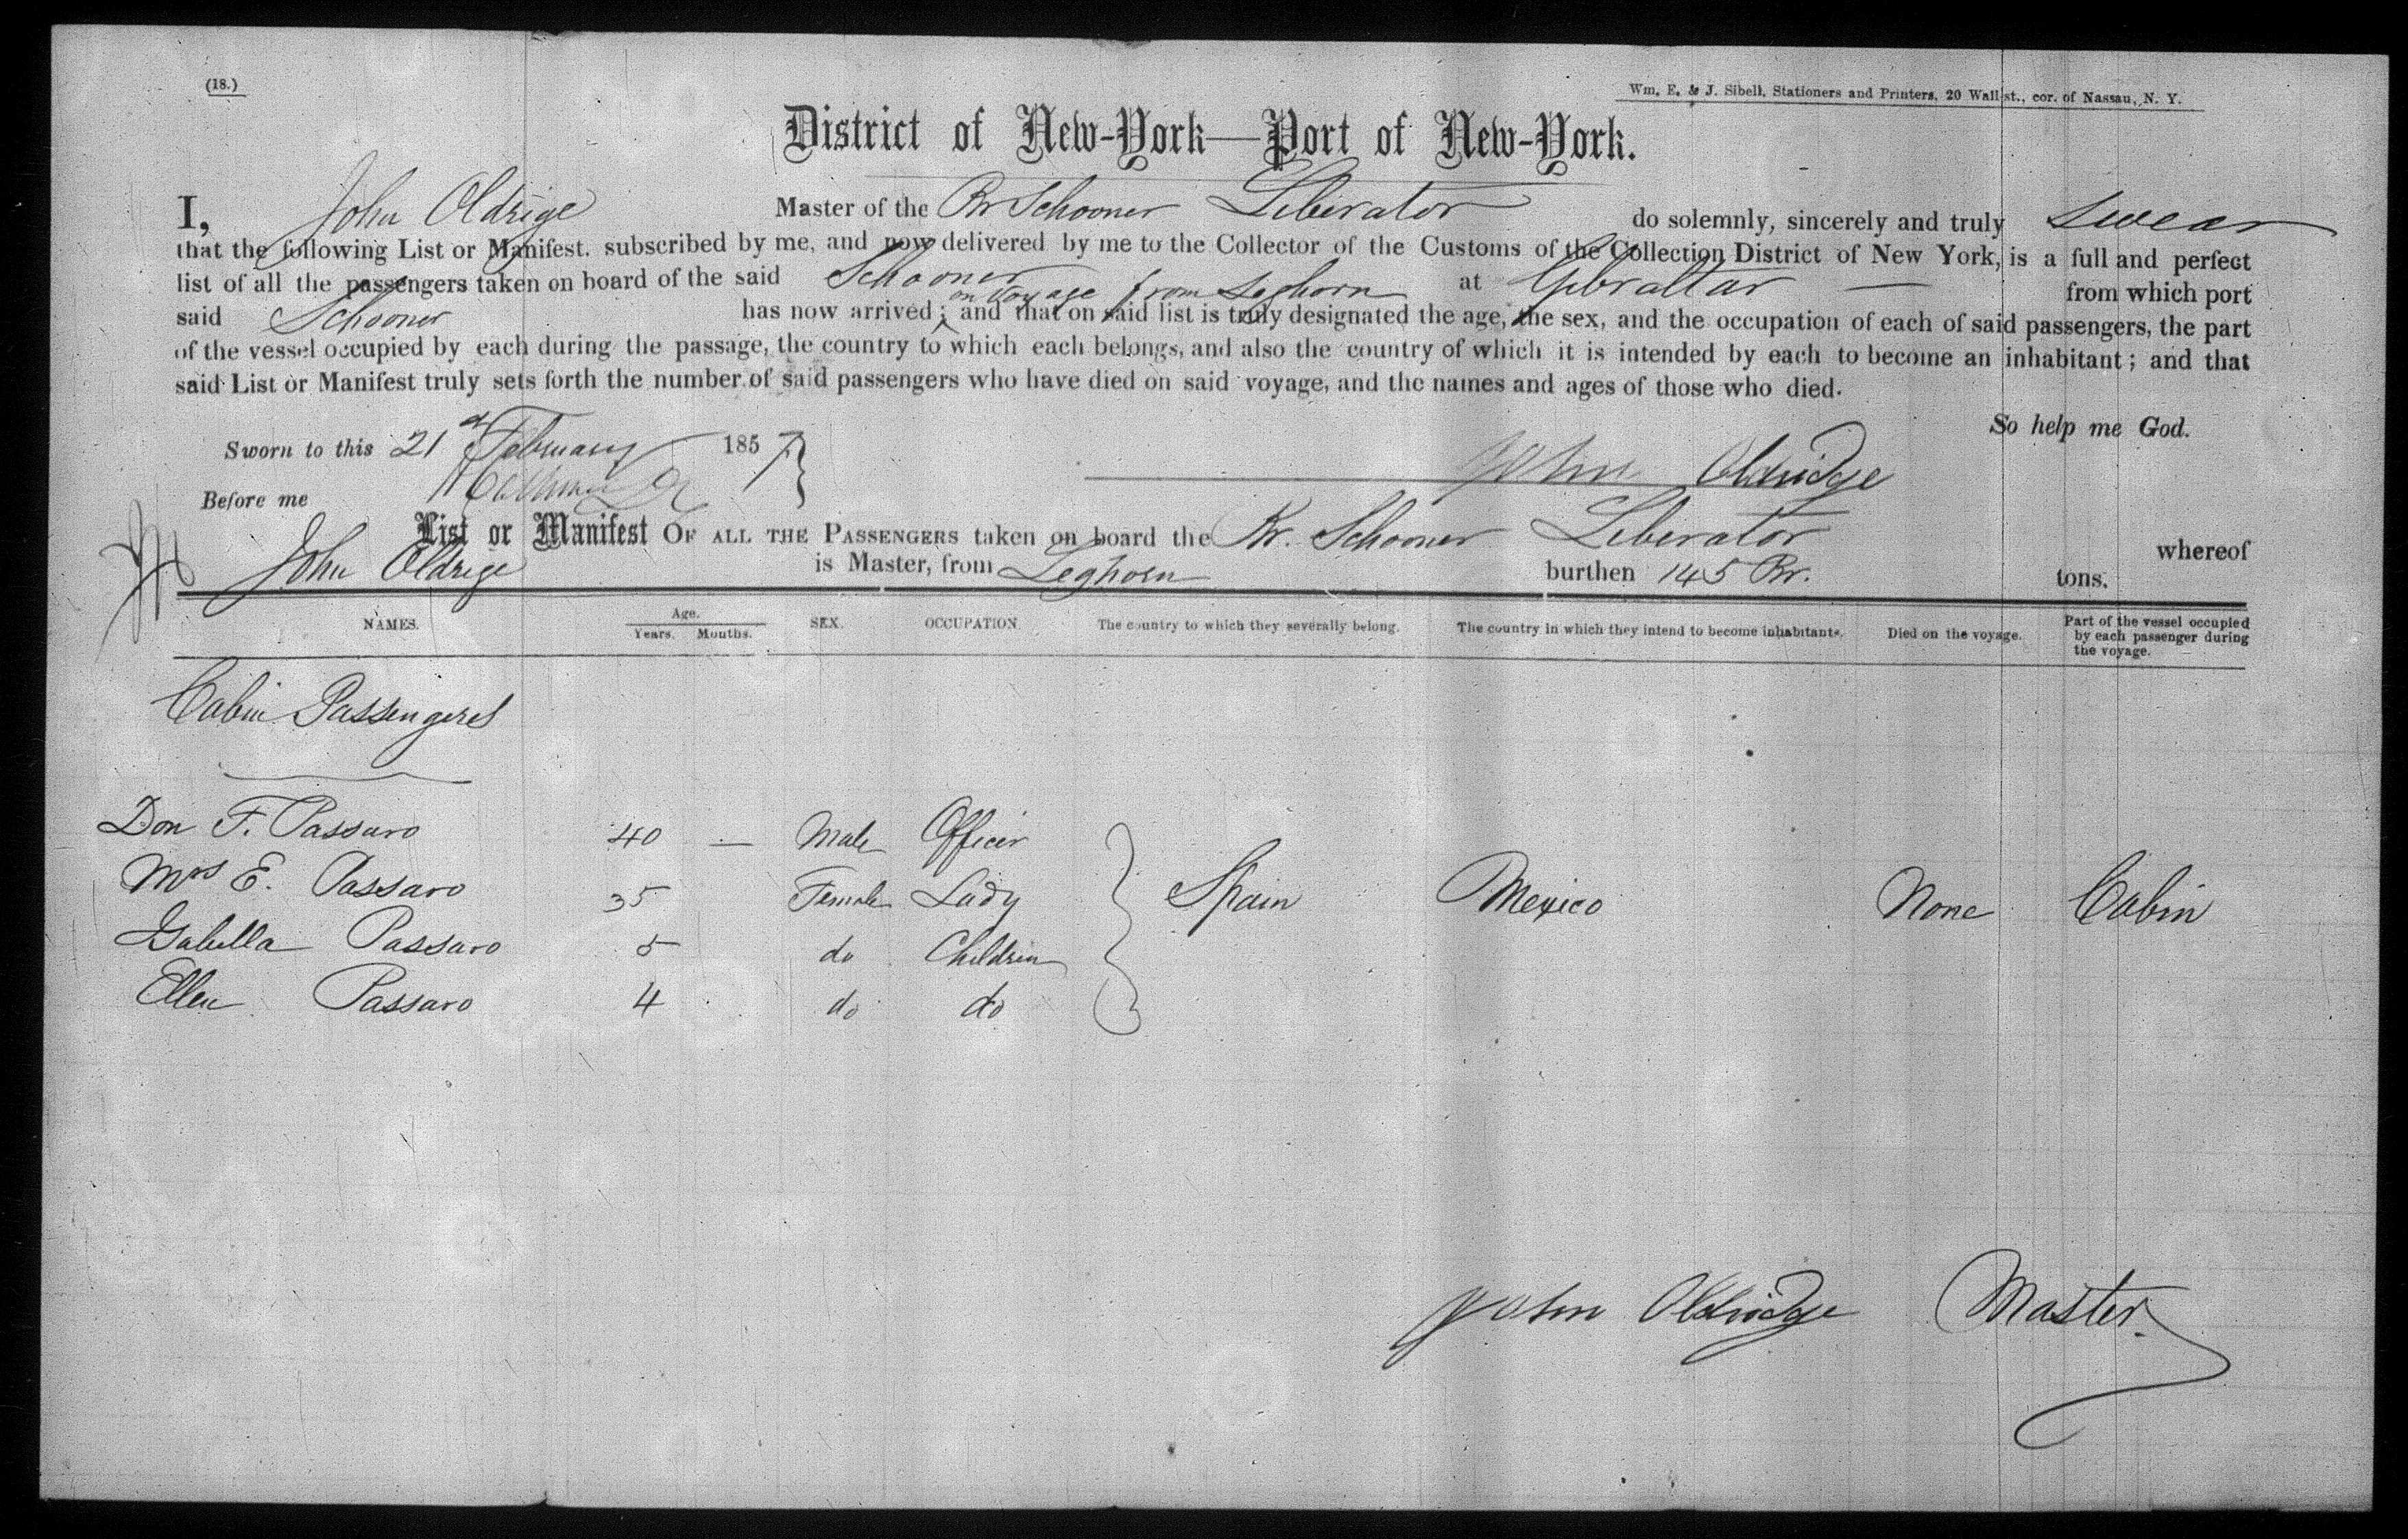 (18.)
Wm. E. & J. Sibell, Stationers and Printers, 20 Wall st., cor. of Nassau, N. Y.
District of New-York—Port of New-York.
I, John Oldrige Master of the Br Schooner Liberator do solemnly, sincerely and truly swear
that the following List or Manifest, subscribed by me, and now delivered by me to the Collector of the Customs of the Collection District of New York, is a full and perfect
list of all the passengers taken on board of the said Schooner at Gibraltar — from which port
on voyage from Leghorn
said Schooner has now arrived; and that on said list is truly designated the age, the sex, and the occupation of each of said passengers, the part
of the vessel occupied by each during the passage, the country to which each belongs, and also the country of which it is intended by each to become an inhabitant; and that
said List or Manifest truly sets forth the number of said passengers who have died on said voyage, and the names and ages of those who died.
So help me God.
Sworn to this 21 February 1857
John Oldridge
Before me
List or Manifest OF ALL THE PASSENGERS taken on board the Br. Schooner Liberator whereof
John Oldrige is Master, from Leghorn burthen 145 Br. tons.
NAMES. Age. Years. Months. SEX. OCCUPATION. The country to which they severally belong. The country in which they intend to become inhabitants. Died on the voyage. Part of the vessel occupied by each passenger during the voyage.
Cabin Passengers
Don F. Passaro 40 — Male Officer
Mrs E. Passaro 35 Female Lady Spain Mexico None Cabin
Isabella Passaro 5 do Children
Ellen Passaro 4 do do
John Oldridge Master.